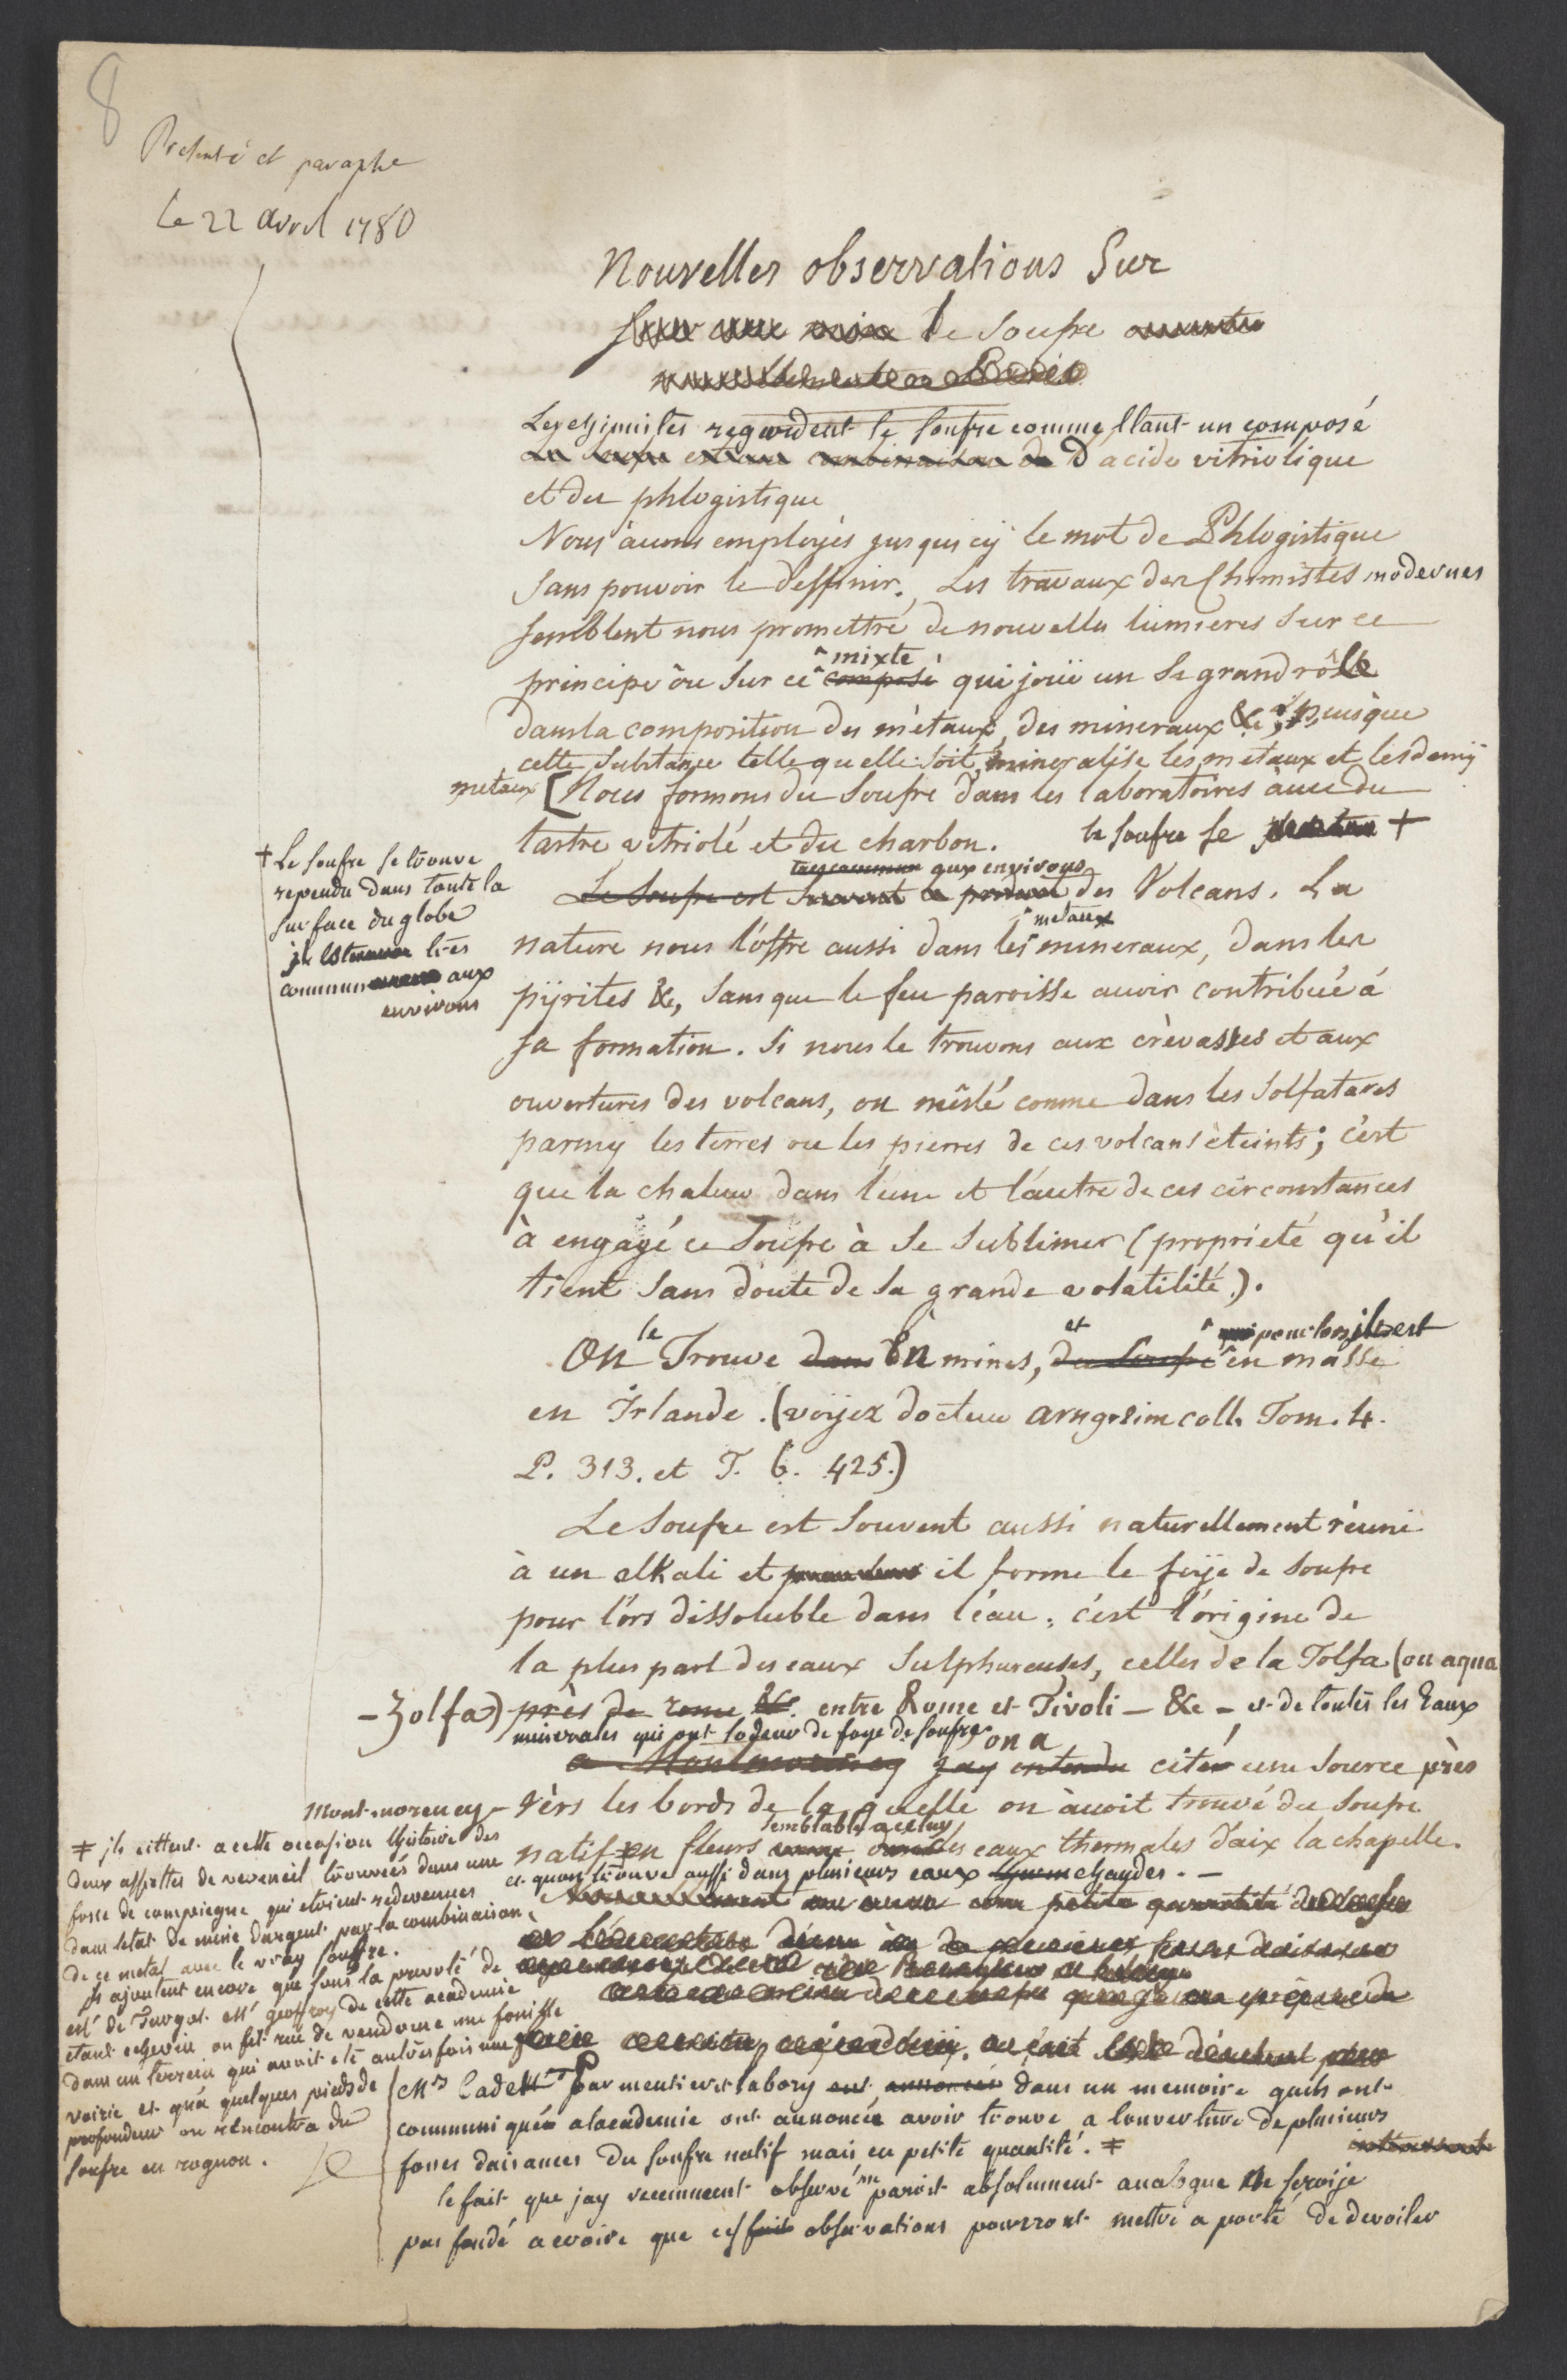 8
Presenté et paraphe
le 22 avril 1780
Nouvelles observations Sur
le Soufre
Les chimistes regardent le soufre comme etant un composé
D acide vitriolique
et du phlogistique
Nous àvons employés jusqu'icy le mot de Phlogistique
sans pouvoir le deffinir. Les travaux des Chimistes modernes
semblent nous promettre de nouvelles lumieres sur ce
principe ôu sur ce composé mixte qui joüe un si grand rôle
dans la composition des métaux, des mineraux &c, puisque
cette substance telle quelle soit, mineralise les metaux et les demij
metaux [Nous formons du Soufre dans les laboratoires avec du
tartre vitriolé et du charbon. le soufre se +
+ Le soufre se trouve
rependu dans toute la
surface du globe
il est tres
commun aux
environs
Le Soufre est souvent le produit tres commun aux environs des Volcans. La
nature nous l'offre aussi dans les metaux mineraux, dans les
pijrites &c, sans que le feu paroisse avoir contribué à
sa formation. Si nous le trouvons aux crèvasses et aux
ouvertures des volcans, ou mêslé comme dans les Solfatares
parmy les terres ou les pierres de ces volcans èteints; c'est
que la chaleur dans l'une et l'autre de ces circonstances
à engagé ce Soufre à se sublimer (propriété qu'il
tient sans doute de sa grande volatilité).
On le Trouve dans En mines, du Soufre et pour lors il est en masse
en Irlande. (voyez docteur coll. Tom. 4.
P. 313. et T. 6. 425.)
Le Soufre est souvent aussi naturellement réuni
à un alkali et il forme le foije de soufre
pour l'ors dissoluble dans l'éau; c'est l'origine de
la plus part des eaux Sulphureuses, celles de la Tolfa (ou aqua
- Zolfa) près de rome &c. entre Rome et Tivoli - &c - et de toutes les Eaux
minerales qui ont lodeur de foye de soufre
a Montmorency jay entendu on a citer une source près
Mont-morency - vèrs les bords de la quelle on àvoit trouvé du Soufre
natif en fleurs semblable a celuy des eaux thermales d'aix la chapelle.
et quon trouve aussi dans plusieurs eaux chaudes. -
≠ ils cittent a cette occasion lhistoire des
deux assiettes de vermeil trouvées dans une
fosse de compiegne qui etoient redevenues
dans letat de mine dargent par la combinaison
de ce metal avec le vray souffre.
ils ajoutent encore que sous la prevoté de
mr. de Turgot. mr geoffroy de cette academie
etant echevin on fit rue de vendome une fouille
dans un terrein qui avoit eté autres fois une
voirie et quà quelques pieds de
profondeur on rencontra du
soufre en rognon.
Mrs Cadet Parmentier et labory dans un memoire quils ont
communiqués a lacademie ont annoncée avoir trouve a louverture de plusieurs
fosses daisances du soufre natif mais en petite quantité. ≠
interessante
le fait que jay recemment observé me paroit absolument analogue ne seroije
pas fondé a croire que ces fait observations pourront mettre a porté de devoiler